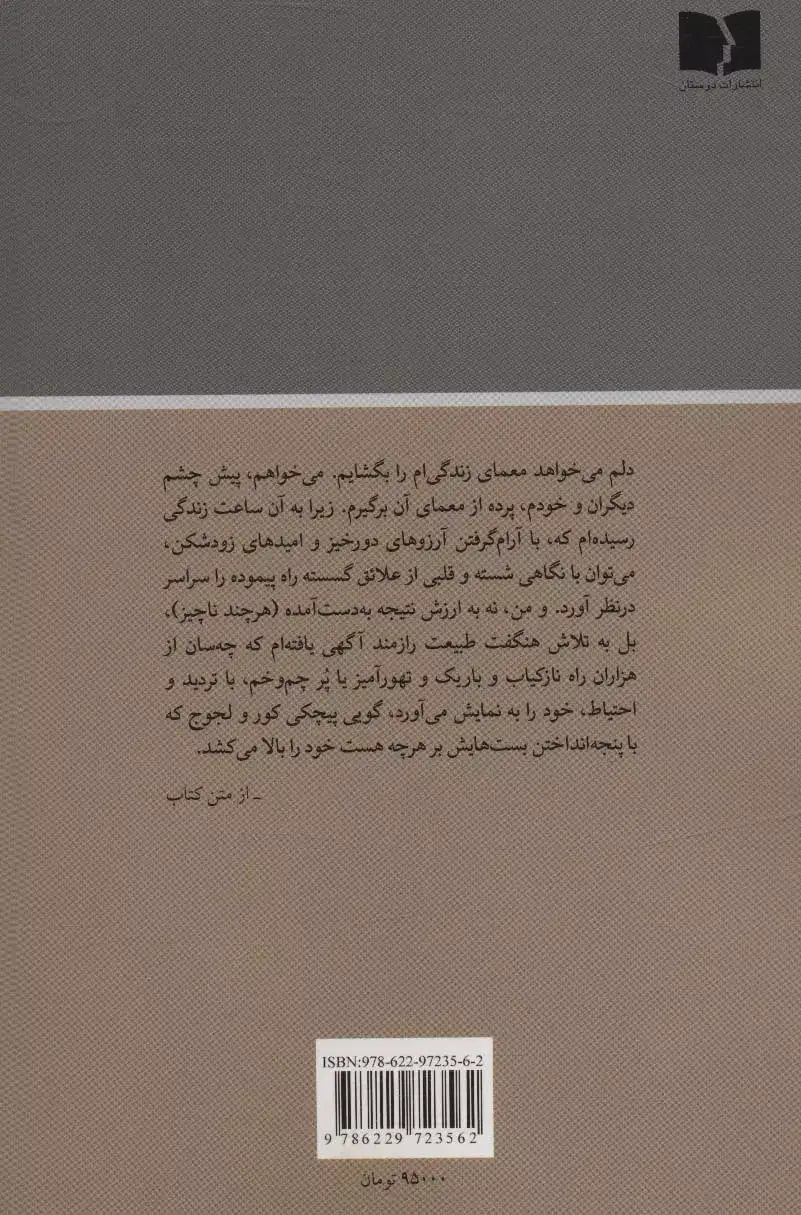 انتشارات دُرستان
دلم می‌خواهد معمای زندگی‌ام را بگشایم. می‌خواهم، پیش چشم
دیگران و خودم، پرده از معمای آن برگیرم. زیرا به آن ساعت زندگی
رسیده‌ام که، با آرام‌گرفتن آرزوهای دورخیز و امیدهای زودشکن،
می‌توان با نگاهی شسته و قلبی از علائق گسسته راه پیموده را سراسر
درنظر آورد. و من، نه به ارزش نتیجه به‌دست‌آمده (هرچند ناچیز)،
بل به تلاش هنگفت طبیعت رازمند آگهی یافته‌ام که چه‌سان از
هزاران راه نازکیاب و باریک و تهورآمیز یا پُر چم‌وخم، با تردید و
احتیاط، خود را به نمایش می‌آورد، گویی پیچکی کور و لجوج که
با پنجه‌انداختن بست‌هایش بر هرچه هست خود را بالا می‌کشد.
ـ از متن کتاب
ISBN:978-622-97235-6-2
9 786229 723562
۹۵۰۰۰ تومان